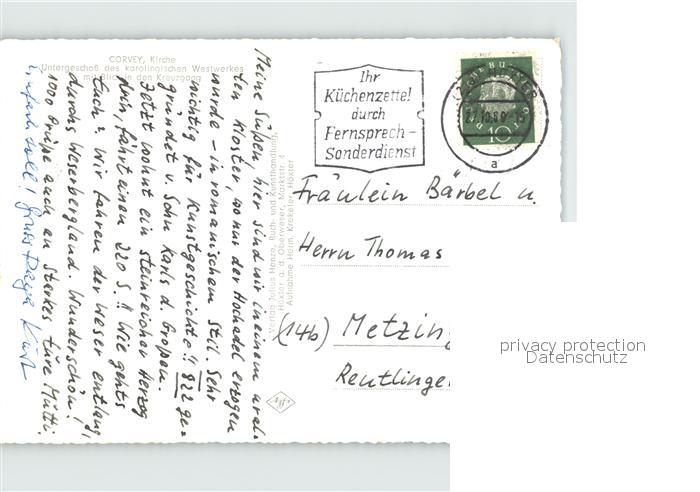 CORVEY, Kirche
Untergeschoß des karolingischen Westwerkes
mit Blick in den Kreuzgang
Meine Süßen, hier sind wir in einem ural-
ten Kloster, wo nur der Hochadel erzogen
wurde - in romanischem Stil. Sehr
wichtig für Kunstgeschichte!! 822 ge-
gründet v. Sohn Karls d. Großen.
Jetzt wohnt ein steinreicher Herzog
drin, fährt einen 220 S.!! Wie gehts
Euch? Wir fahren der Weser entlang,
durchs Weserbergland. Wunderschön!
1000 Grüße auch an Sterkes Eure Mutti
Einfach toll! Gruss Kurt
Verlag Julius Henze, Buch- und Kunsthandlung,
Höxter a. d. Oberweser, Marktstr. 4
Aufnahme Harm. Krekeler, Höxter
Ihr
Küchenzettel
durch
Fernsprech-
Sonderdienst
a
10
Fräulein Bärbel u.
Herrn Thomas
(14b) Metzing
Reutlinge
Agfa
privacy protection
Datenschutz